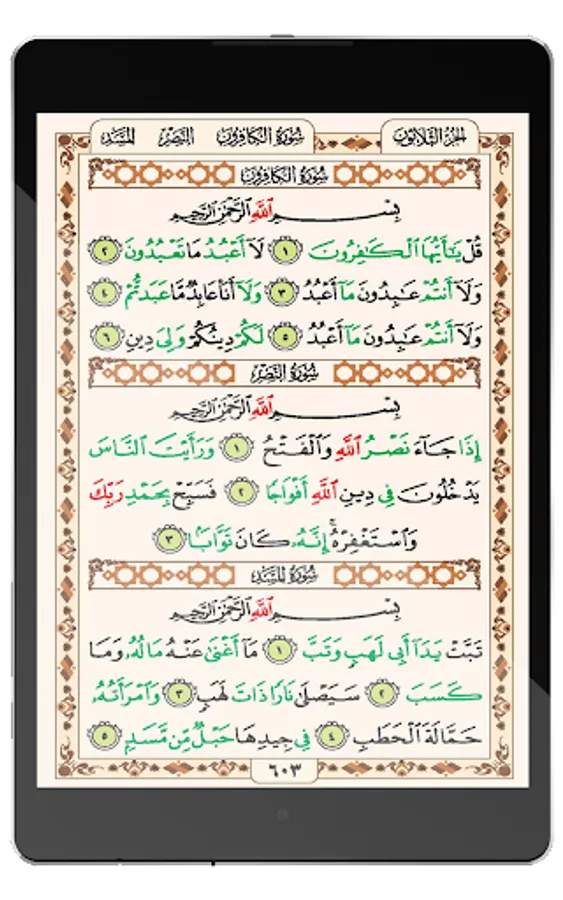 الجزء الثلاثون سُورَةُ الكَافِرُون النَّصْر المَسَد
سُورَةُ الكَافِرُون
بِسْمِ ٱللَّهِ ٱلرَّحْمَٰنِ ٱلرَّحِيمِ
قُلْ يَٰٓأَيُّهَا ٱلْكَٰفِرُونَ ١ لَآ أَعْبُدُ مَا تَعْبُدُونَ ٢
وَلَآ أَنتُمْ عَٰبِدُونَ مَآ أَعْبُدُ ٣ وَلَآ أَنَا۠ عَابِدٌ مَّا عَبَدتُّمْ ٤
وَلَآ أَنتُمْ عَٰبِدُونَ مَآ أَعْبُدُ ٥ لَكُمْ دِينُكُمْ وَلِىَ دِينِ ٦
سُورَةُ النَّصْر
بِسْمِ ٱللَّهِ ٱلرَّحْمَٰنِ ٱلرَّحِيمِ
إِذَا جَآءَ نَصْرُ ٱللَّهِ وَٱلْفَتْحُ ١ وَرَأَيْتَ ٱلنَّاسَ
يَدْخُلُونَ فِى دِينِ ٱللَّهِ أَفْوَاجًا ٢ فَسَبِّحْ بِحَمْدِ رَبِّكَ
وَٱسْتَغْفِرْهُ ۚ إِنَّهُۥ كَانَ تَوَّابًۢا ٣
سُورَةُ المَسَد
بِسْمِ ٱللَّهِ ٱلرَّحْمَٰنِ ٱلرَّحِيمِ
تَبَّتْ يَدَآ أَبِى لَهَبٍ وَتَبَّ ١ مَآ أَغْنَىٰ عَنْهُ مَالُهُۥ وَمَا
كَسَبَ ٢ سَيَصْلَىٰ نَارًا ذَاتَ لَهَبٍ ٣ وَٱمْرَأَتُهُۥ
حَمَّالَةَ ٱلْحَطَبِ ٤ فِى جِيدِهَا حَبْلٌ مِّن مَّسَدٍۭ ٥
٦٠٣